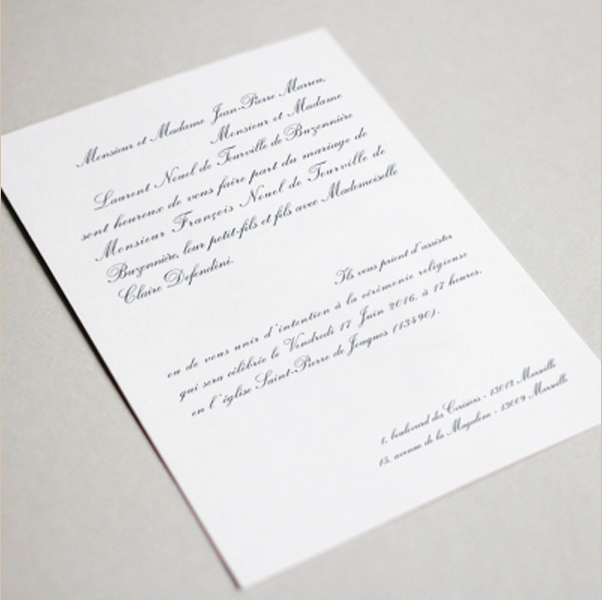 Monsieur et Madame Jean-Pierre Marrou,
Monsieur et Madame
Laurent Nouel de Tourville de Buzonnière
sont heureux de vous faire part du mariage de
Monsieur François Nouel de Tourville de
Buzonnière, leur petit-fils et fils avec Mademoiselle
Claire Defendini.
Ils vous prient d'assister
ou de vous unir d'intention à la cérémonie religieuse
qui sera célébrée le Vendredi 17 Juin 2016, à 17 heures,
en l'église Saint-Pierre de Jouques (13490).
1, boulevard des Cerisiers - 13012 Marseille
15, avenue de la Magalone - 13009 Marseille